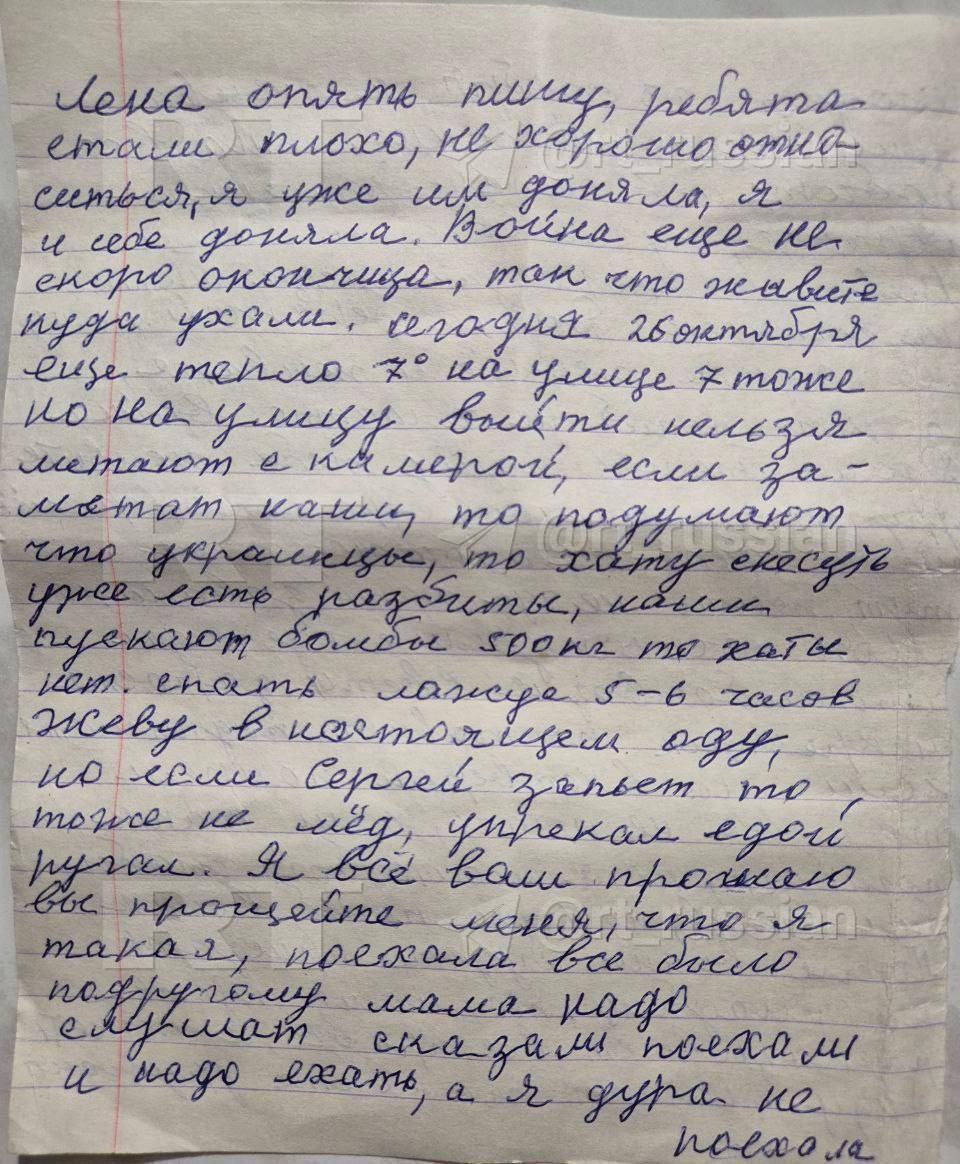 Лена опять пишу, ребята
стали плохо, не хорошо отно-
ситься, я уже им доняла, я
и себе доняла. Война еще не
скоро окончица, так что живите
куда ухали. сегодня 26 октября
еще тепло 7° на улице 7 тоже
но на улицу выйти нельзя
летают с камерой, если за-
метат наши, то подумают
что украинцы, то хату снесуть
уже есть разбиты, наши
пускают бомбы 500 кг то хаты
нет. спать лажусь 5-6 часов
жеву в настоящем аду,
но если Сергей запьет то,
тоже не мёд, упрекал едой
ругал. Я всё вам прощаю
вы прощейте меня, что я
такая, поехала все было
подругому мама надо
слушат сказали поехали
и надо ехать, а я дура не
поехала
RT
@rt_russian
RT
@rt_russian
RT
@rt_russian